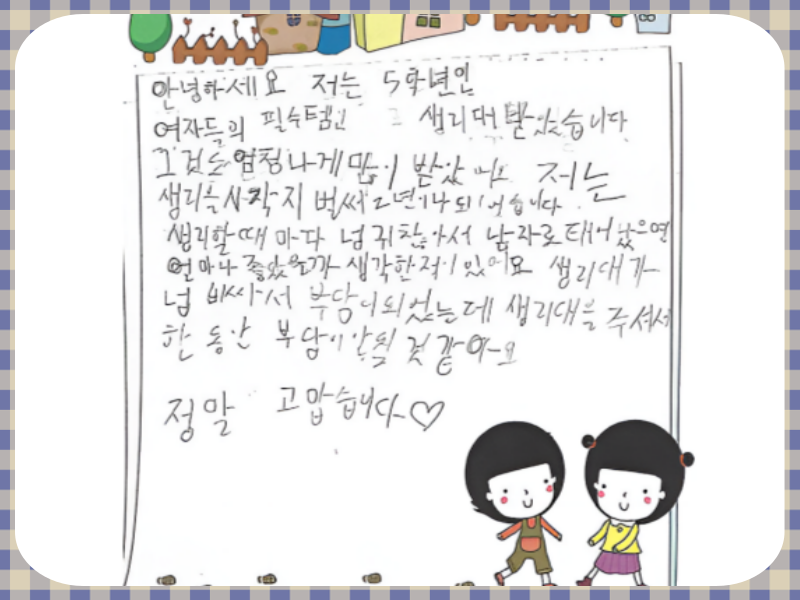 안녕하세요 저는 5학년인
여자들의 필수템인 생리대 받았습니다
그것도 엄청나게 많이 받았어요 저는
생리를 시작 지 벌써 2년이나 되었습니다
생리할때 마다 넘 귀찮아서 남자로 태어났으면
얼마나 좋았을까 생각한적이 있어요 생리대가
넘 비싸서 부담이되었는데 생리대를 주셔서
한동안 부담이안될 것 같아요
정말 고맙습니다♡